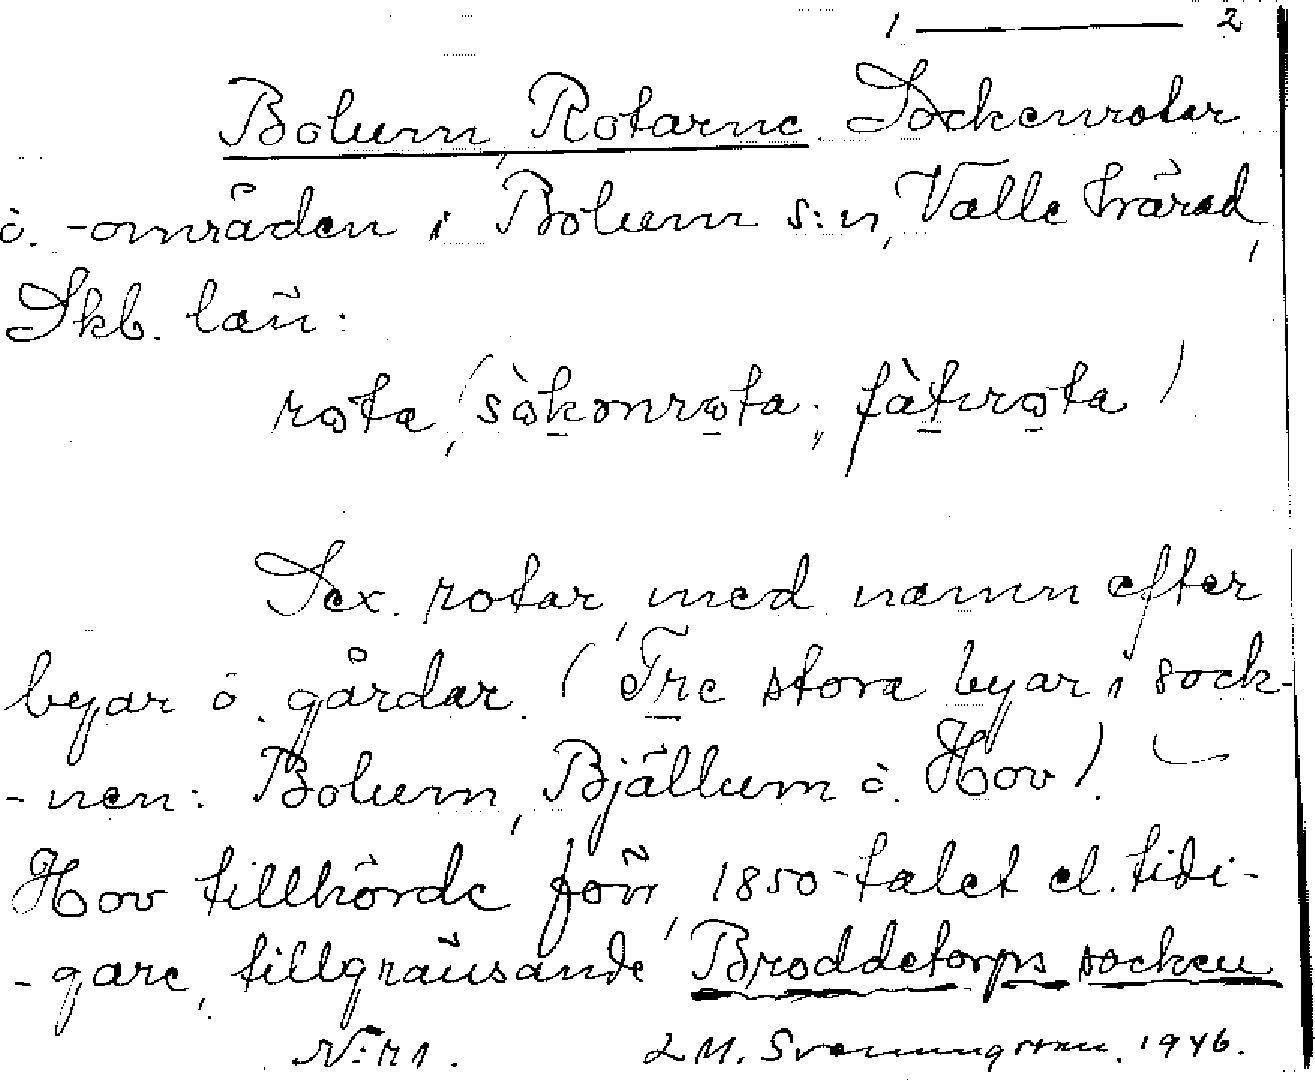 1 — 2
Bolum, Rotarne. Sockenrotar
o. -områden i Bolum s:n, Valle härad,
Skb. län:
rota, (sòkonrota; fàtırota)
Sex. rotar, med namn efter
byar o. gårdar. (Tre stora byar i sock-
-nen: Bolum, Bjällum o. Hov).
Hov tillhörde förr, 1850-talet el. tidi-
-gare, tillgränsande Broddetorps socken
N:r 1. L M. Svenungsson. 1946.